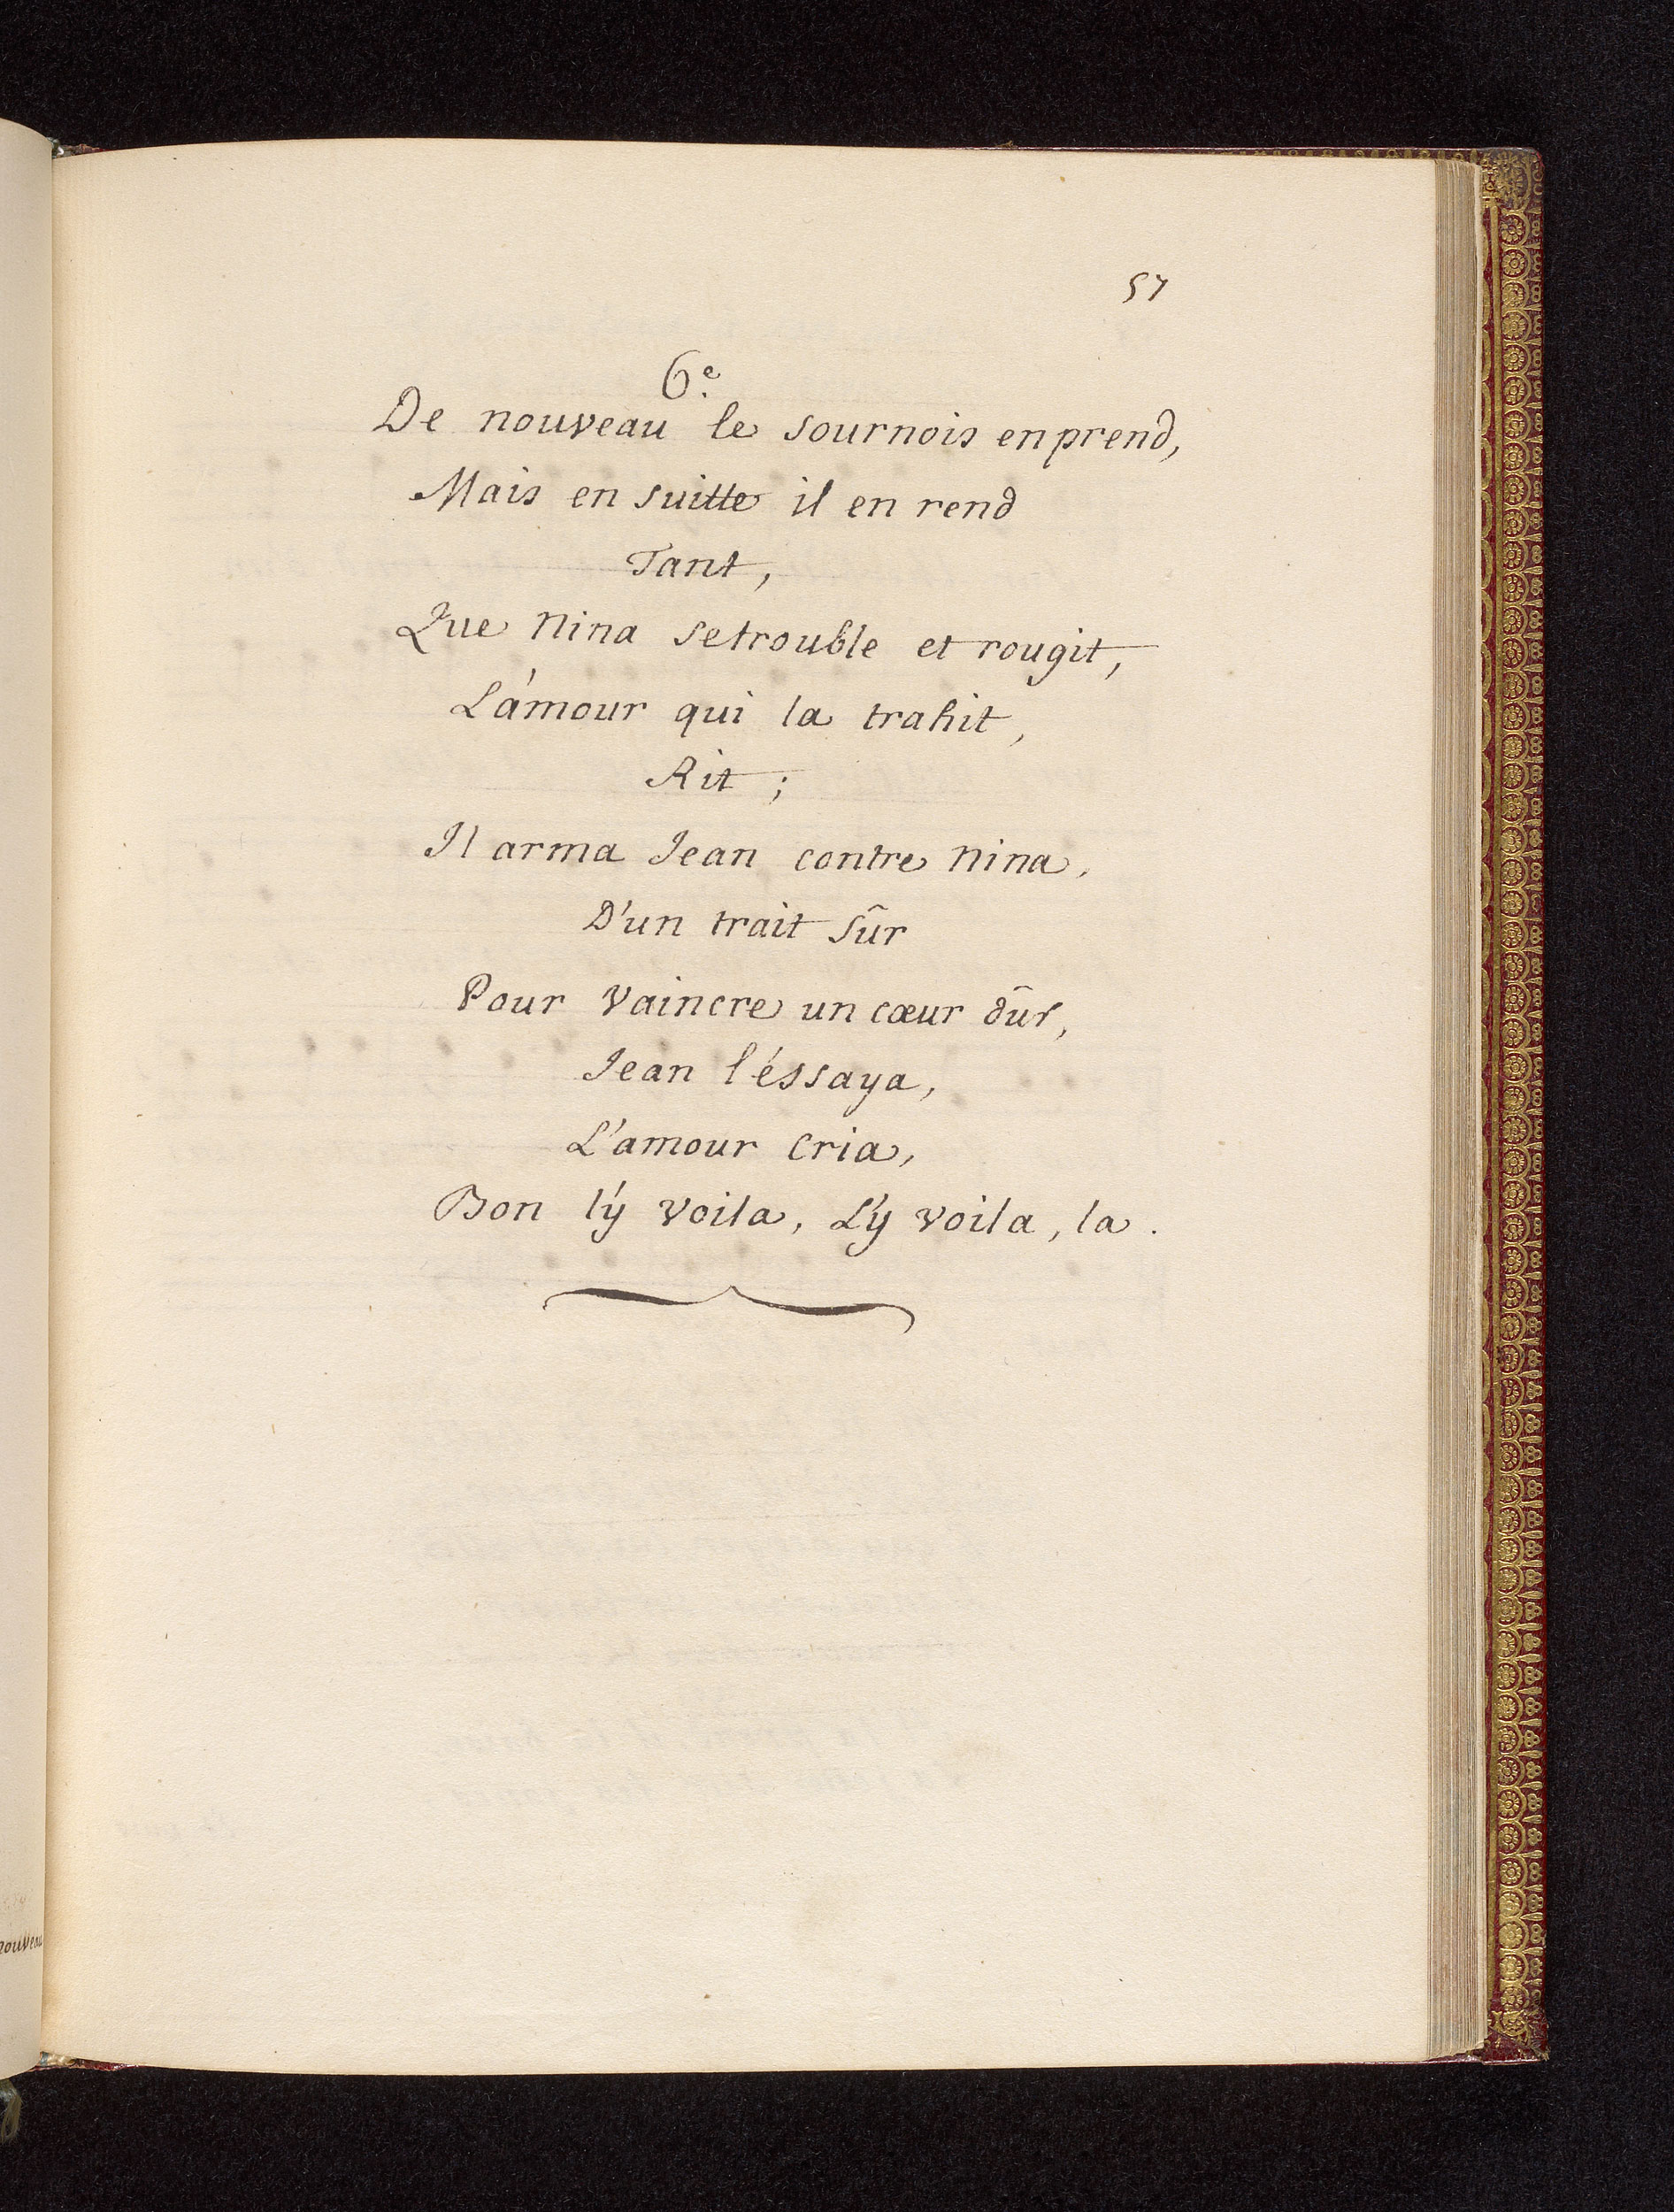 57
6e.
De nouveau le sournois en prend,
Mais en suitte il en rend
Tant,
Que Nina se trouble et rougit,
L'amour qui la trahit,
Rit ;
Il arma Jean contre Nina,
D'un trait sûr
Pour vaincre un cœur dûr,
Jean l'éssaya,
L'amour cria,
Bon l'y voila, L'y voila, la.
nouveau